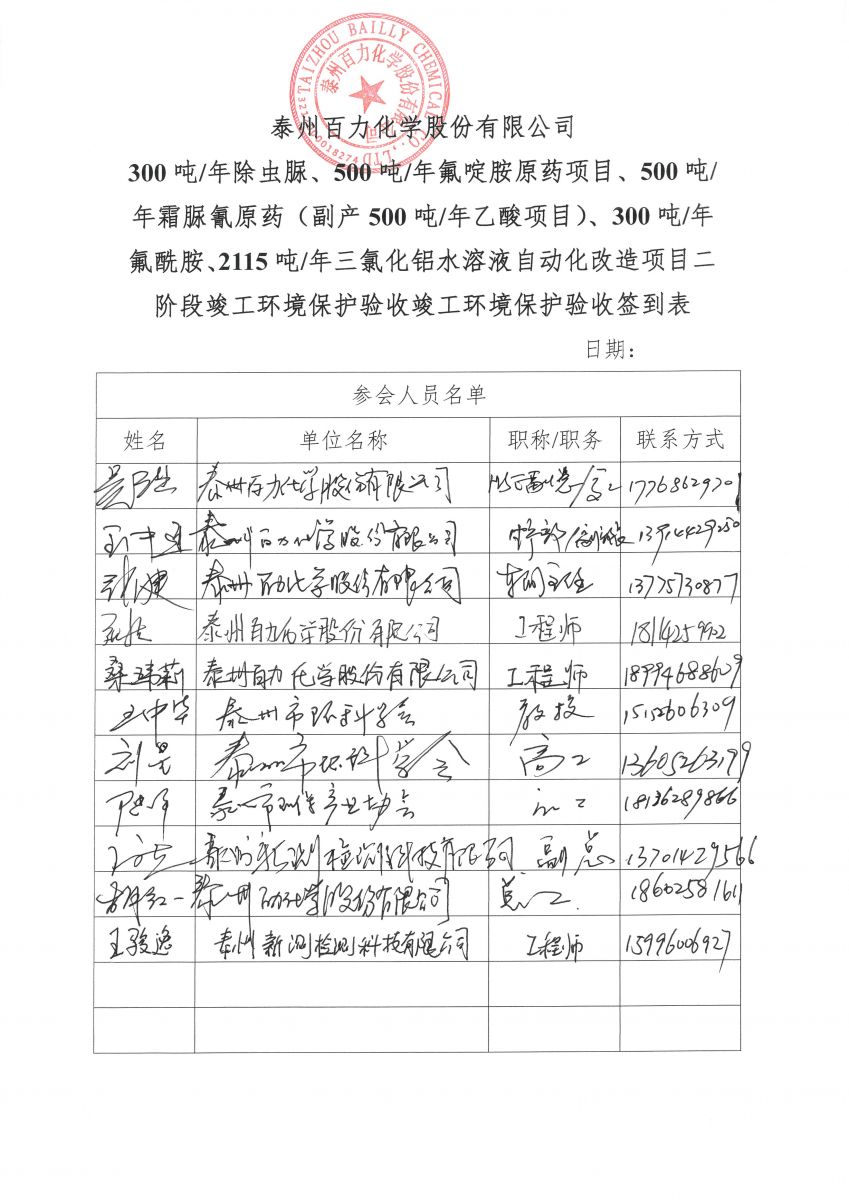 TAIZHOU BAILLY CHEMICAL CO., LTD
泰州百力化学股份有限公司
泰州百力化学股份有限公司
300 吨/年除虫脲、500 吨/年氟啶胺原药项目、500 吨/
年霜脲氰原药（副产 500 吨/年乙酸项目）、300 吨/年
氟酰胺、2115 吨/年三氯化铝水溶液自动化改造项目二
阶段竣工环境保护验收竣工环境保护验收签到表
日期：
参会人员名单
姓名 单位名称 职称/职务 联系方式
泰州百力化学股份有限公司 17768629701
泰州百力化学股份有限公司 13914429250
张健 泰州百力化学股份有限公司 车间主任 13775730877
泰州百力化学股份有限公司 工程师
桑玮莉 泰州百力化学股份有限公司 工程师 18994688609
王中华 泰州市环科学会 教授 15152606309
刘昊 泰州市环科学会 高工 13605263199
泰州市环保产业协会 18136289866
泰州新测检测科技有限公司 副总 13701429566
泰州百力化学股份有限公司 总工 18602581611
王骏逸 泰州新测检测科技有限公司 工程师 15996006927